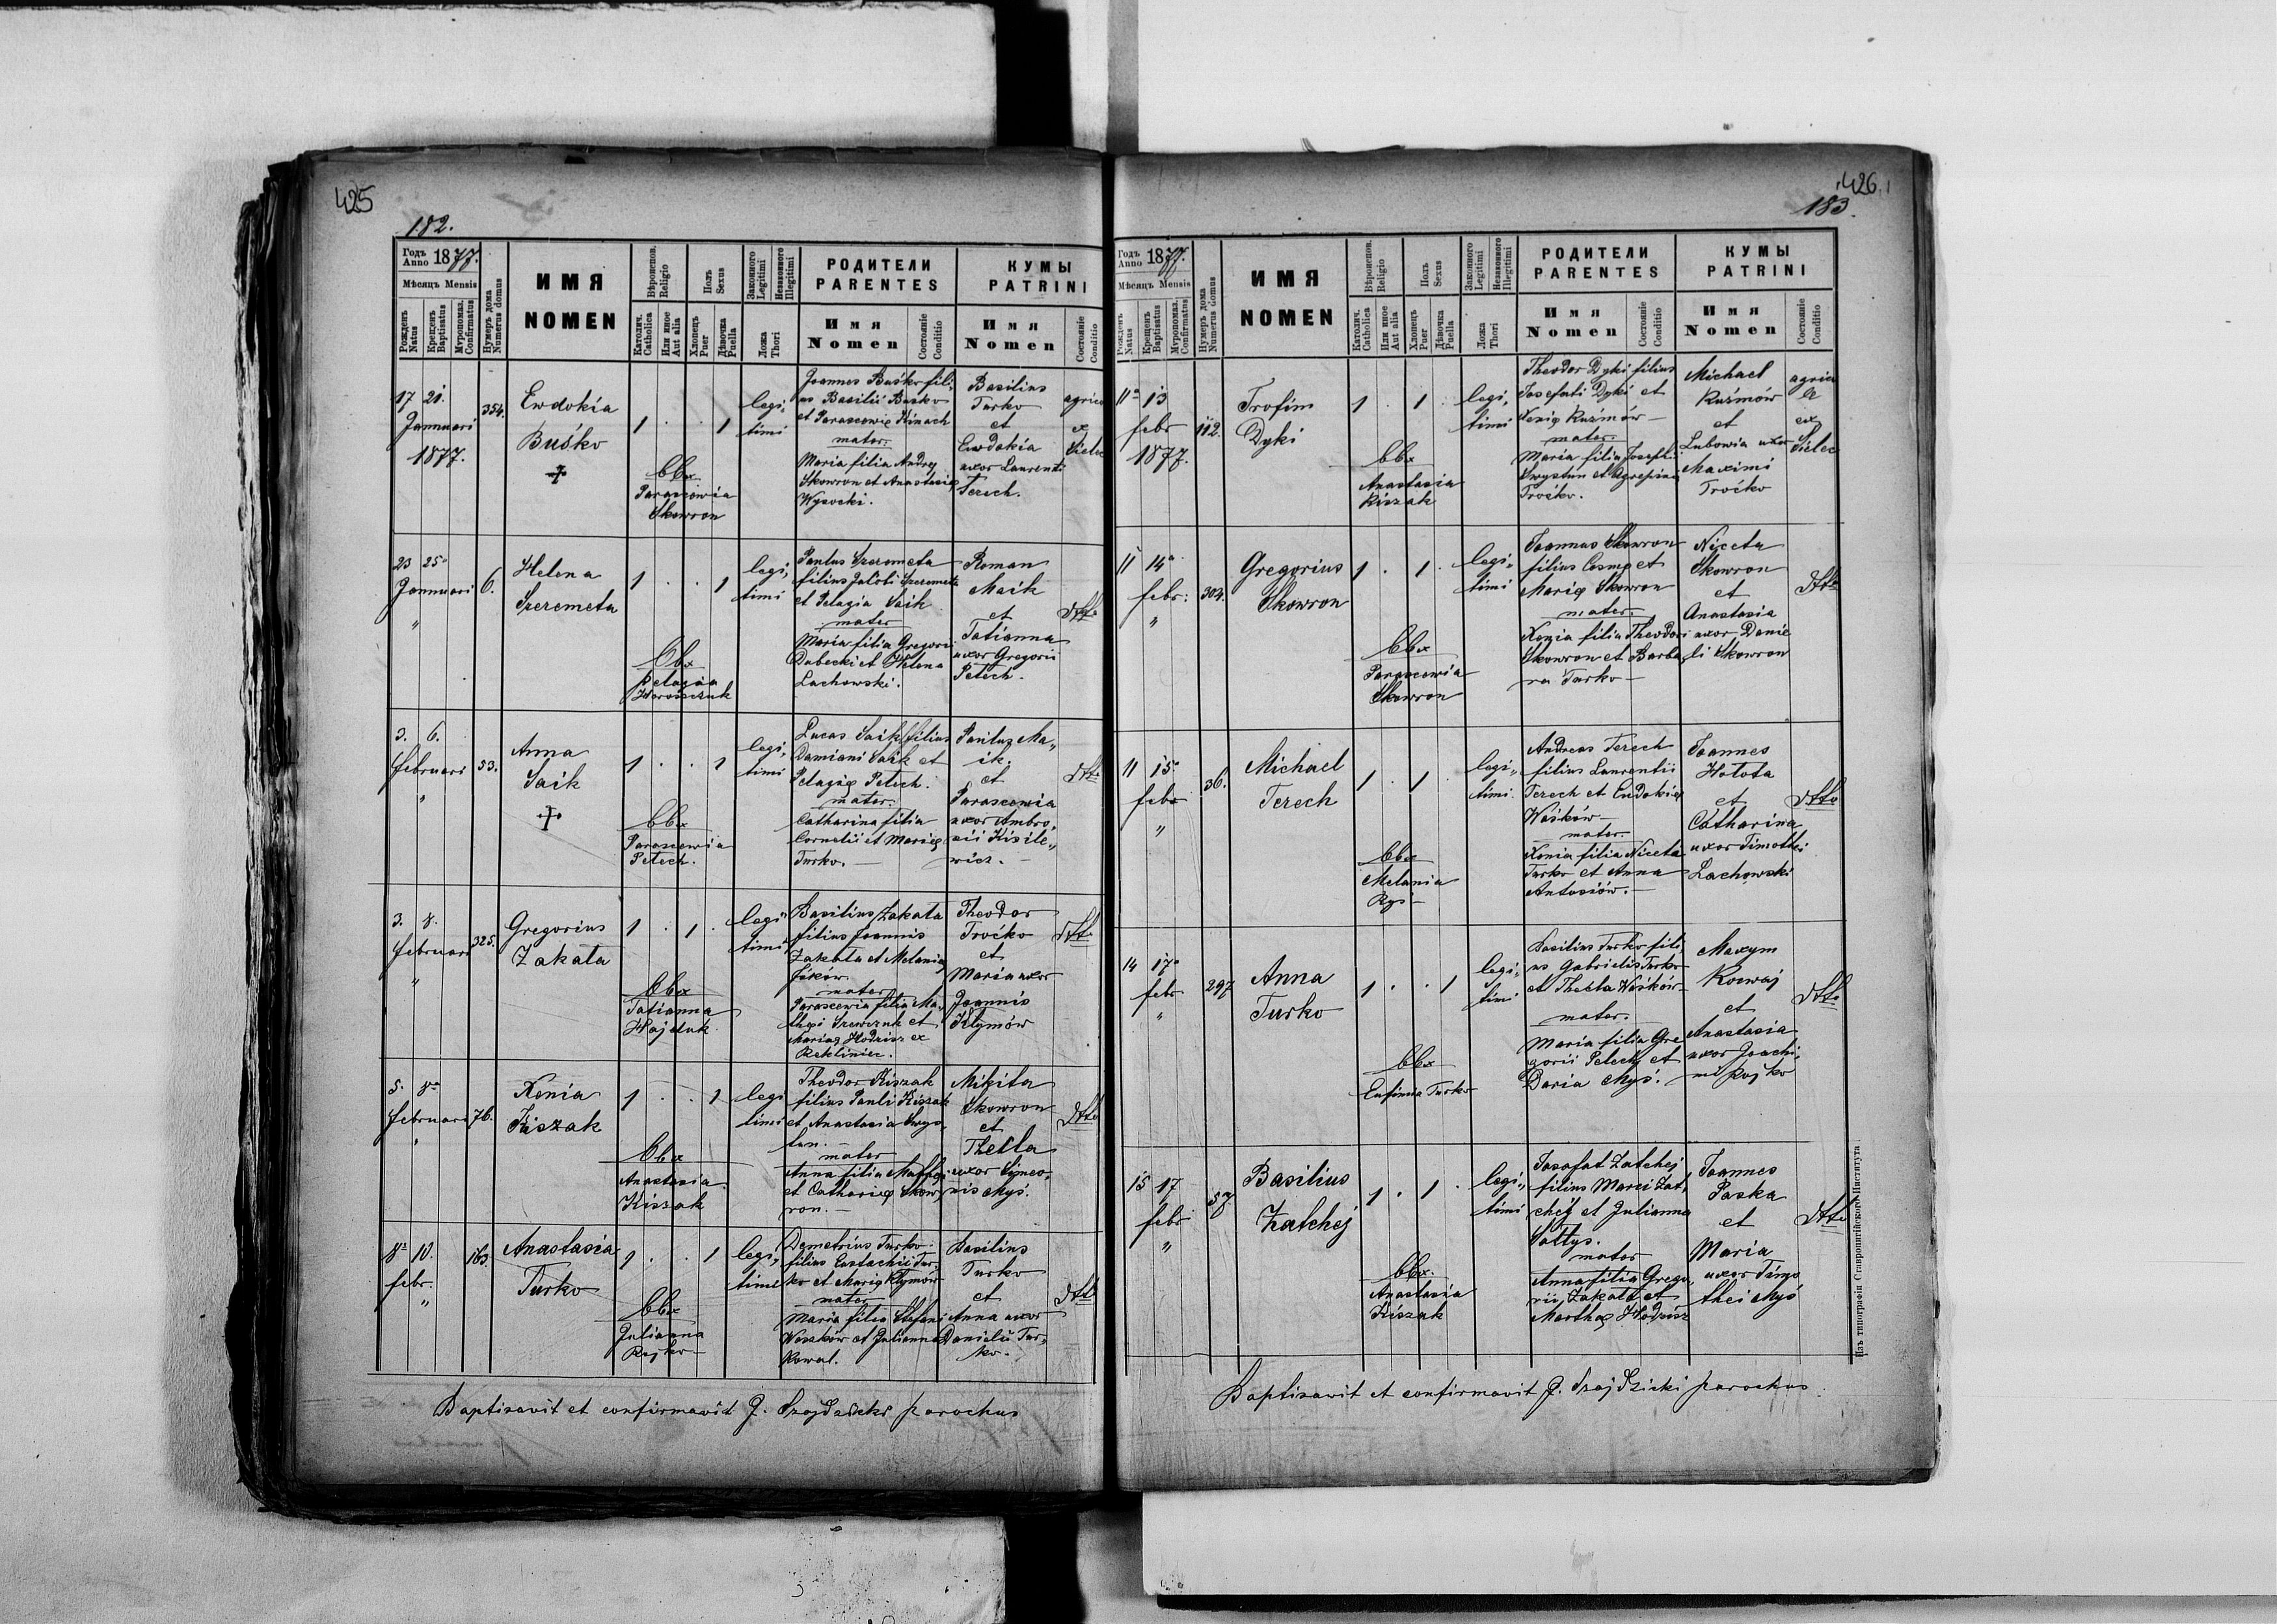 425
182.
Годъ Anno 1877.
Мѣсяцъ Mensis
Рожденъ Natus
Крещенъ Baptisatus
Мѵропомаз. Confirmatus
Нумеръ дома Numerus domus
ИМЯ
NOMEN
Вѣроиспов. Religio
Католич. Catholica
Или иное Aut alia
Полъ Sexus
Хлопецъ Puer
Дѣвочка Puella
Законного Legitimi
Незаконного Illegitimi
Ложа Thori
РОДИТЕЛИ
PARENTES
Имя
Nomen
Состояніе Conditio
КУМЫ
PATRINI
Имя
Nomen
Состояніе Conditio
17 21.
Jannuari
1877.
354.
Ewdokia
Buśko
1 . . 1
obx
Parascewia
Skowron
legi,
timi
Joannes Buśko fili,
us Basilii Buśko
et Parascewię Kinach
mater.
Maria filia Andrę
Skowron et Anastasię
Wysocki.
Basilius
Turko
et
Ewdokia
uxor Laurenti
Terech.
agrico
ex
Sielec
23 25
Jannuari
"
6.
Helena
Szeremeta
1 . . 1
obx
Pelagia
Haraszczuk
legi,
timi
Pantus Szeremeta
filius Jacobi Szeremeta
et Pelagia Saik
mater
Maria filia Gregorii
Dubecki et Helena
Lachowski.
Roman
Maik
et
Tatianna
uxor Gregorii
Petech.
dtto
3. 6.
februari
"
53.
Anna
Saik
1 . . 1
obx
Parascewia
Petech.
legi,
timi
Lucas Saik filius
Damiani Saik et
Pelagię Petech.
mater.
Catharina filia
Cornelii et Marię
Turko.
Pantus Ma,,
ik.
et
Parascewia
uxor Ambro,
zii Kisile,,
wicz.
dtto
3. 8.
februari
"
325.
Gregorius
Zakala
1 . 1 .
obx
Tatianna
Hajduk.
legi,
timi
Basilius Zakala
filius Joannis
Zakala et Melania
mater
Parascewia filia Ma,
thęi Szewczuk et
Marię Hodzisz ex
Rekliniec.
Theodor
Troćko
et
Maria uxor
Joannis
Klymów
dtto
5. 8
februari
"
76.
Xenia
Kiszak
1 . . 1
obx
Anastasia
Kiszak
legi
timi
Theodor Kiszak
filius Pauli Kiszak
et Anastasia Swys,
tun.
mater
Anna filia Mathęi
et Catharię Skow,
ron.
Mikita
Skowron
et
Thecla
uxor Symeo,
nis Myś.
dtto
8 10.
febr.
"
163.
Anastasia
Turko
1 . . 1
obx
Julianna
Rojko
legi,
timi
Demetrius Turko
filius Eustachii Tur,
ko et Marię Klymów
mater
Maria filia Stefani
Waszków et Julianna
Kowal.
Basilius
Turko
et
Anna uxor
Danielii Tur,
ko.
dtto
Baptisavit et confirmavit J. Szajdzicki parochus
426
183.
Годъ Anno 1877.
Мѣсяцъ Mensis
Рожденъ Natus
Крещенъ Baptisatus
Мѵропомаз. Confirmatus
Нумеръ дома Numerus domus
ИМЯ
NOMEN
Вѣроиспов. Religio
Католич. Catholica
Или иное Aut alia
Полъ Sexus
Хлопецъ Puer
Дѣвочка Puella
Законного Legitimi
Незаконного Illegitimi
Ложа Thori
РОДИТЕЛИ
PARENTES
Имя
Nomen
Состояніе Conditio
КУМЫ
PATRINI
Имя
Nomen
Состояніе Conditio
11 13
febr
1877.
112.
Trofim
Dyki
1 . 1 .
obx
Anastasia
Kiszak
legi,
timi
Theodor Dyki filius
Josefati Dyki et
Xenię Kuźmów
mater.
Maria filia Josefi
Swystun et Agrepina
Troćko.
Michael
Kuźmów
et
Lubowia uxor
Maximi
Troćko
agrico
lę
ex
Sielec
11 14
febr:
"
304.
Gregorius
Skowron
1 . 1 .
obx
Parascewia
Skowron
legi,
timi
Joannes Skowron
filius Cosmę et
Marię Skowron
mater.
Xenia filia Theodori
Skowron et Barba,
ra Turko
Niceta
Skowron
et
Anastasia
uxor Danie
li Skowron
dtto
11 15
febr
"
36.
Michael
Terech
1 . 1 .
obx
Melania
Rys
legi,,
timi.
Andreas Terech
filius Laurentii
Terech et Eudokię
Waśków
mater
Xenia filia Niceta
Turko et Anna
Antosiów.
Joannes
Hołota
et
Catharina
uxor Timothei
Lachowski
dtto
14 17
febr
"
297
Anna
Turko
1 . . 1
obx
Eufimia Turko
legi,
timi
Basilius Turko fili,
us Gabrielis Turko
et Thecla Waśków
mater.
Maria filia Gre
gorii Petech et
Daria Myś.
Maxym
Korwaj
et
Anastasia
uxor Joachi,
mi Rojko
dtto
15 17
febr
"
57
Basilius
Zatchej
1 . 1 .
obx.
Anastasia
Kiszak
legi,,
timi
Josafat Zatchej
filius Marci Zat,
chej et Julianna
Sałtys.
mater
Anna filia Grego,
rii Zakala et
Marthę Hodzisz
Joannes
Paska
et
Maria
uxor Timo
thei Myś
dtto
Baptisavit et confirmavit J. Szajdzicki parochus.
Изъ типографіи Ставропигійского Института